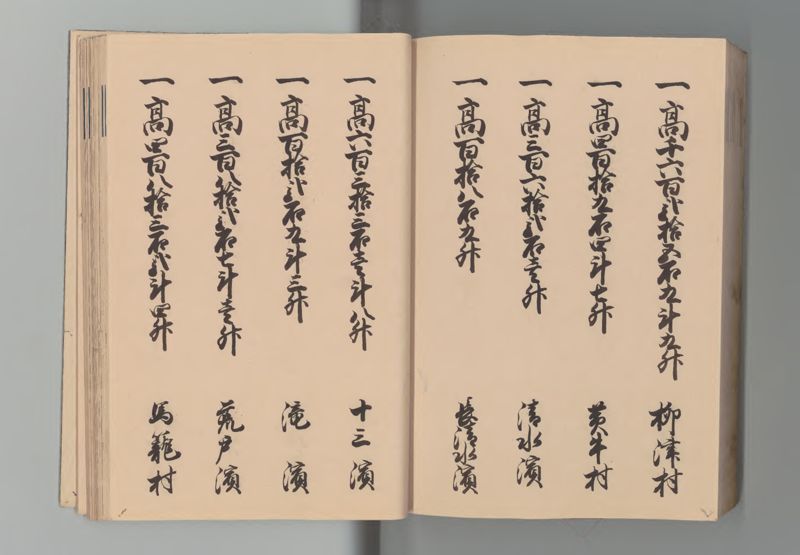 一高千六百弐拾五石九斗九升 柳津村
一高四百拾九石四斗七升 黄牛村
一高三百六拾弐石壱斗 清水濱
一高百拾八石九升 長清水濱
一高六百三拾三石壱斗八升 十三濱
一高百拾弐石九斗三升 滝濱
一高三百八拾弐石七斗壱升 荒戸濱
一高四百八拾三石弐斗四升 馬籠村